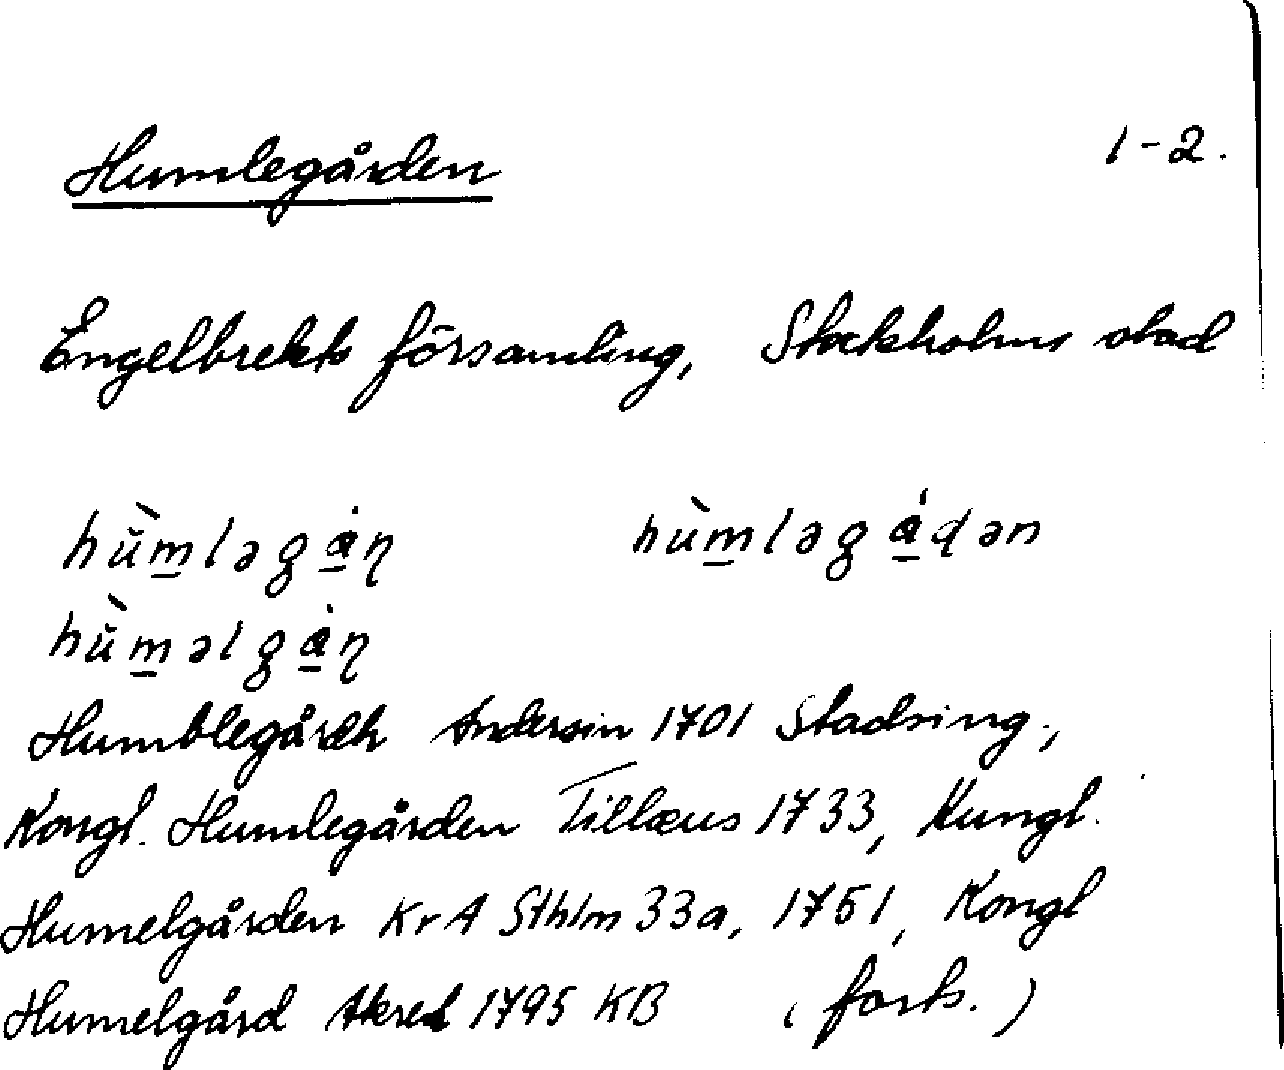 Humlegården 1-2.
Engelbrekts församling, Stockholms stad
hùmləgȧɳ hùmləgȧɖən
hùməlgȧɳ
Humblegårdh Andersin 1701 Stadsing.,
Kongl. Humlegården Tillæus 1733, Kungl.
Humelgården KrA Sthlm 33a, 1751, Kongl
Humelgård Akrel 1795 KB (forts.)